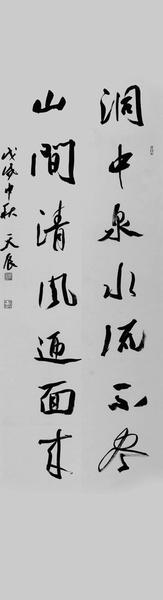 洞中泉水流不尽
山間清风迎面来
戊戌中秋 天辰